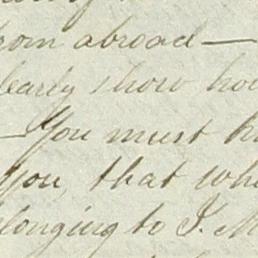 from abroad —
clearly show how
— You must h
you, that wh
longing to J. M